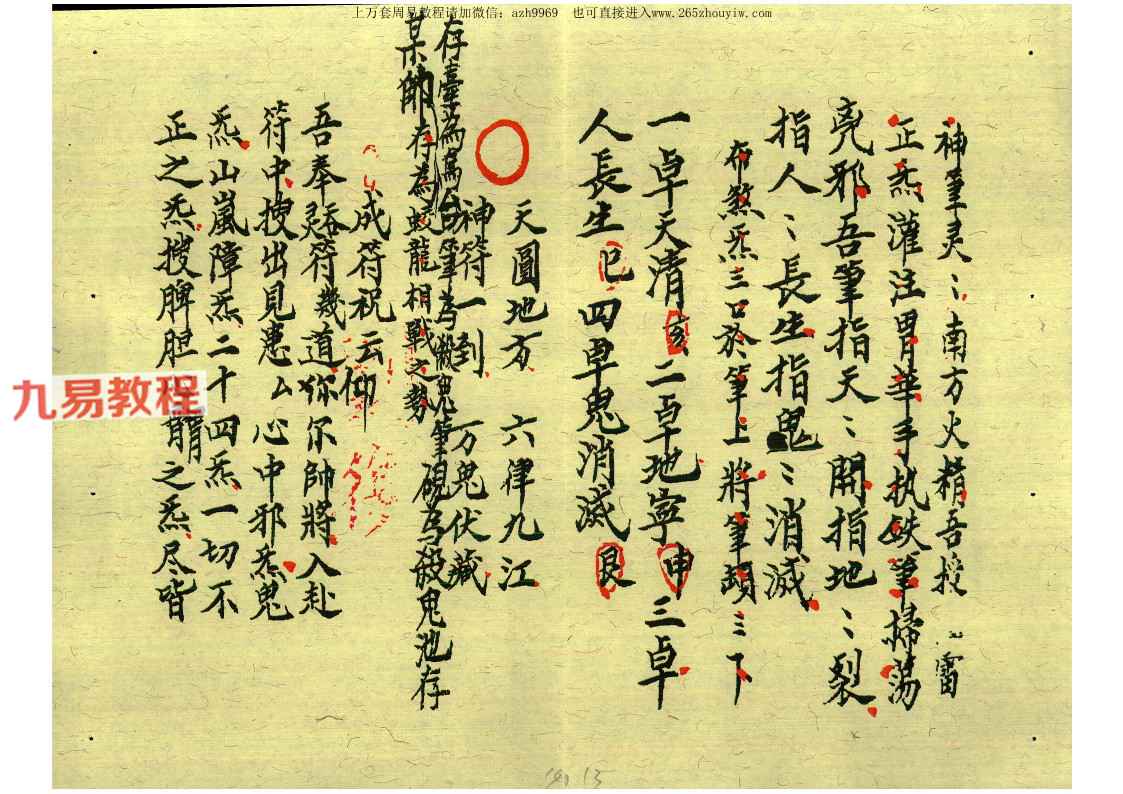 上万套周易教程请加微信：azh9969　也可直接进入www.265zhouyiw.com
神筆灵〻南方火精吾授〻雷
正炁灌注胃華手执妖筆掃蕩
堯邪吾筆指天〻開指地〻裂
指人〻長生指鬼〻消滅
布煞炁三口於筆上將筆頭三下
一卓天清亥二卓地寧申三卓
人長生巳四卓鬼消滅艮
天圓地方　六律九江
神符一到　万鬼伏藏
存臺為筆為鬼筆硯為殺鬼池存
某帥存為蛟龍相戰之勢
成符祝云仰
吾奉符幾道你尔帥將入赴
符中搜出見患厶心中邪炁鬼
炁山嵐障炁二十四炁一切不
正之炁搜脾胆之炁尽皆
九易教程
13